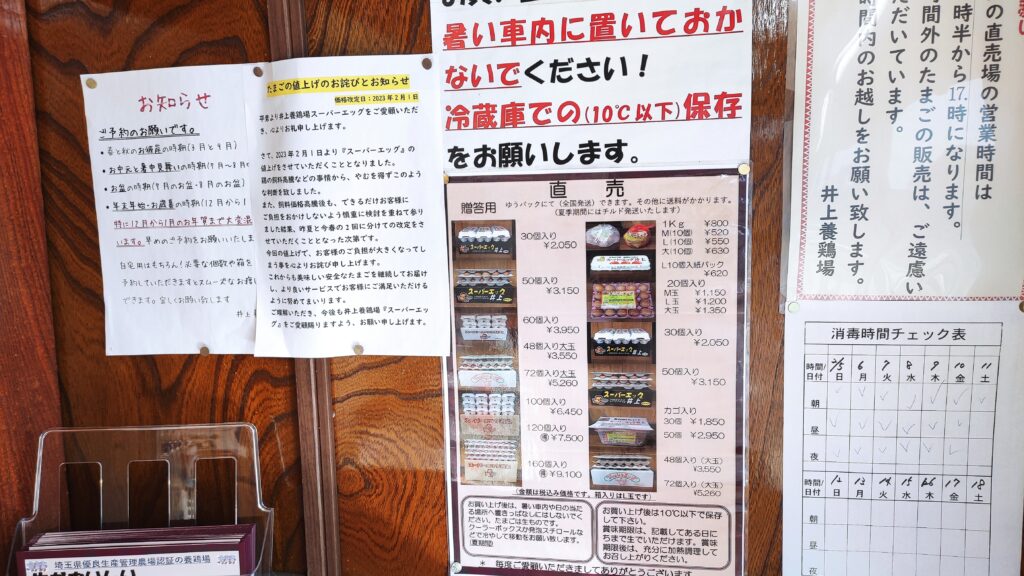 お知らせ
ご予約のお願いです。
・春と秋のお彼岸の時期(3月と9月)
・お中元と暑中見舞いの時期(7月〜8月
・お盆の時期(7月のお盆・8月のお盆)
・年末年始・お歳暮の時期(12月から1
特に12月から1月のお年賀まで大変混
います。早めのご予約をお願いいたしま
自宅用はもちろん!必要な個数や箱を
予約していただきますとスムーズなお渡し
できます。宜しくお願い致します
井上
たまごの値上げのお詫びとお知らせ
価格改定日:2023年2月1日
平素より井上養鶏場スーパーエッグをご愛顧いただ
き、心よりお礼申し上げます。
さて、2023年2月1日より『スーパーエッグ』の
値上げをさせていただくこととなりました。
鶏の飼料高騰などの事情から、やむを得ずこのよう
な判断を致しました。
また、飼料価格高騰後も、できるだけお客様に
ご負担をおかけしないよう慎重に検討を重ねて参り
ました結果、昨夏と今春の2回に分けての改定をさ
せていただくこととなった次第です。
今回の値上げで、お客様のご負担が大きくなってし
まう事を心よりお詫び申し上げます。
これからも美味しい安全なたまごを継続してお届け
し、より良いサービスでお客様にご満足いただける
ように努めてまいります。
ご理解いただき、今後も井上養鶏場『スーパーエッ
グ』をご愛顧賜りますよう、お願い申し上げます。
暑い車内に置いておか
ないでください!
冷蔵庫での(10℃以下)保存
をお願いします。
直売
贈答用
ゆうパックにて(全国発送)できます。その他に送料がかかります。
(夏季期間にはチルド発送いたします)
30個入り
¥2,050
50個入り
¥3,150
60個入り
¥3,950
48個入り大玉
¥3,550
72個入り大玉
¥5,260
100個入り
¥6,450
120個入り
¥7,500
160個入り
¥9,100
1Kg ¥800
M(10個) ¥520
L(10個) ¥550
大(10個) ¥630
L10個入紙パック
¥620
20個入り
M玉 ¥1,150
L玉 ¥1,200
大玉 ¥1,350
30個入り
¥2,050
50個入り
¥3,150
カゴ入り
30個 ¥1,850
50個 ¥2,950
48個入り(大玉)
¥3,550
72個入り(大玉)
¥5,260
(金額は税込み価格です。箱入りはL玉です)
お買い上げ後は、暑い車内や日の当た
る場所へ置きっぱなしにはしないでくだ
さい。たまごは生ものです。
クーラーボックスか発泡スチロールな
どで冷やして移動をお願い致します。
(夏期間)
お買い上げ後は10℃以下で保存
して下さい。
賞味期限は、記載してある日に
ちまで生でいただけます。賞味
期限後は、充分に加熱調理して
お召し上がりください。
* 毎度ご愛顧いただきましてありがとうございます
の直売場の営業時間は
時半から17時になります。
時間外のたまごの販売は、ご遠慮い
ただいています。
時間内のお越しをお願い致します。
井上養鶏場
消毒時間チェック表
時間/日付 2/5日 6月 7火 8水 9木 10金 11土
朝
昼
夜
時間/日付 12日 13月 14火 15水 16木 17金 18土
朝
昼
夜
埼玉県優良生産管理農場認証の養鶏場